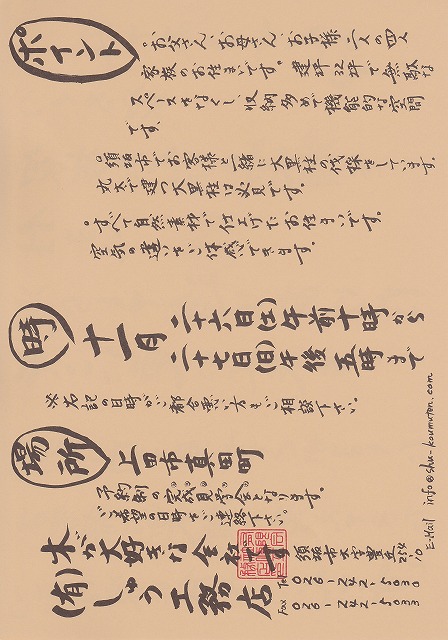 ポイント
○お父さん、お母さん、お子様二人の四人
家族のお住まいです。建坪32坪で無駄な
スペースをなくし、収納多めで機能的な空間
です。
○須坂市でお客様と一緒に大黒柱の伐採をしています。
丸太で建つ大黒柱は必見です。
○すべて自然素材で仕上げたお住まいです。
空気の違いをご体感できます。
時 十一月
二十六日(土)午前十時から
二十七日(日)午後五時まで
※右記の日時がご都合悪い方はご相談下さい。
場所 上田市真田町
予約制の完成見学会となります。
ご希望の日時でご連絡下さい。
木が大好きな会社です
(有)しゅう工務店
須坂市大字豊丘254-10
Tel 026-242-5030
Fax 026-242-
E-Mail info@shu-koumuten.com